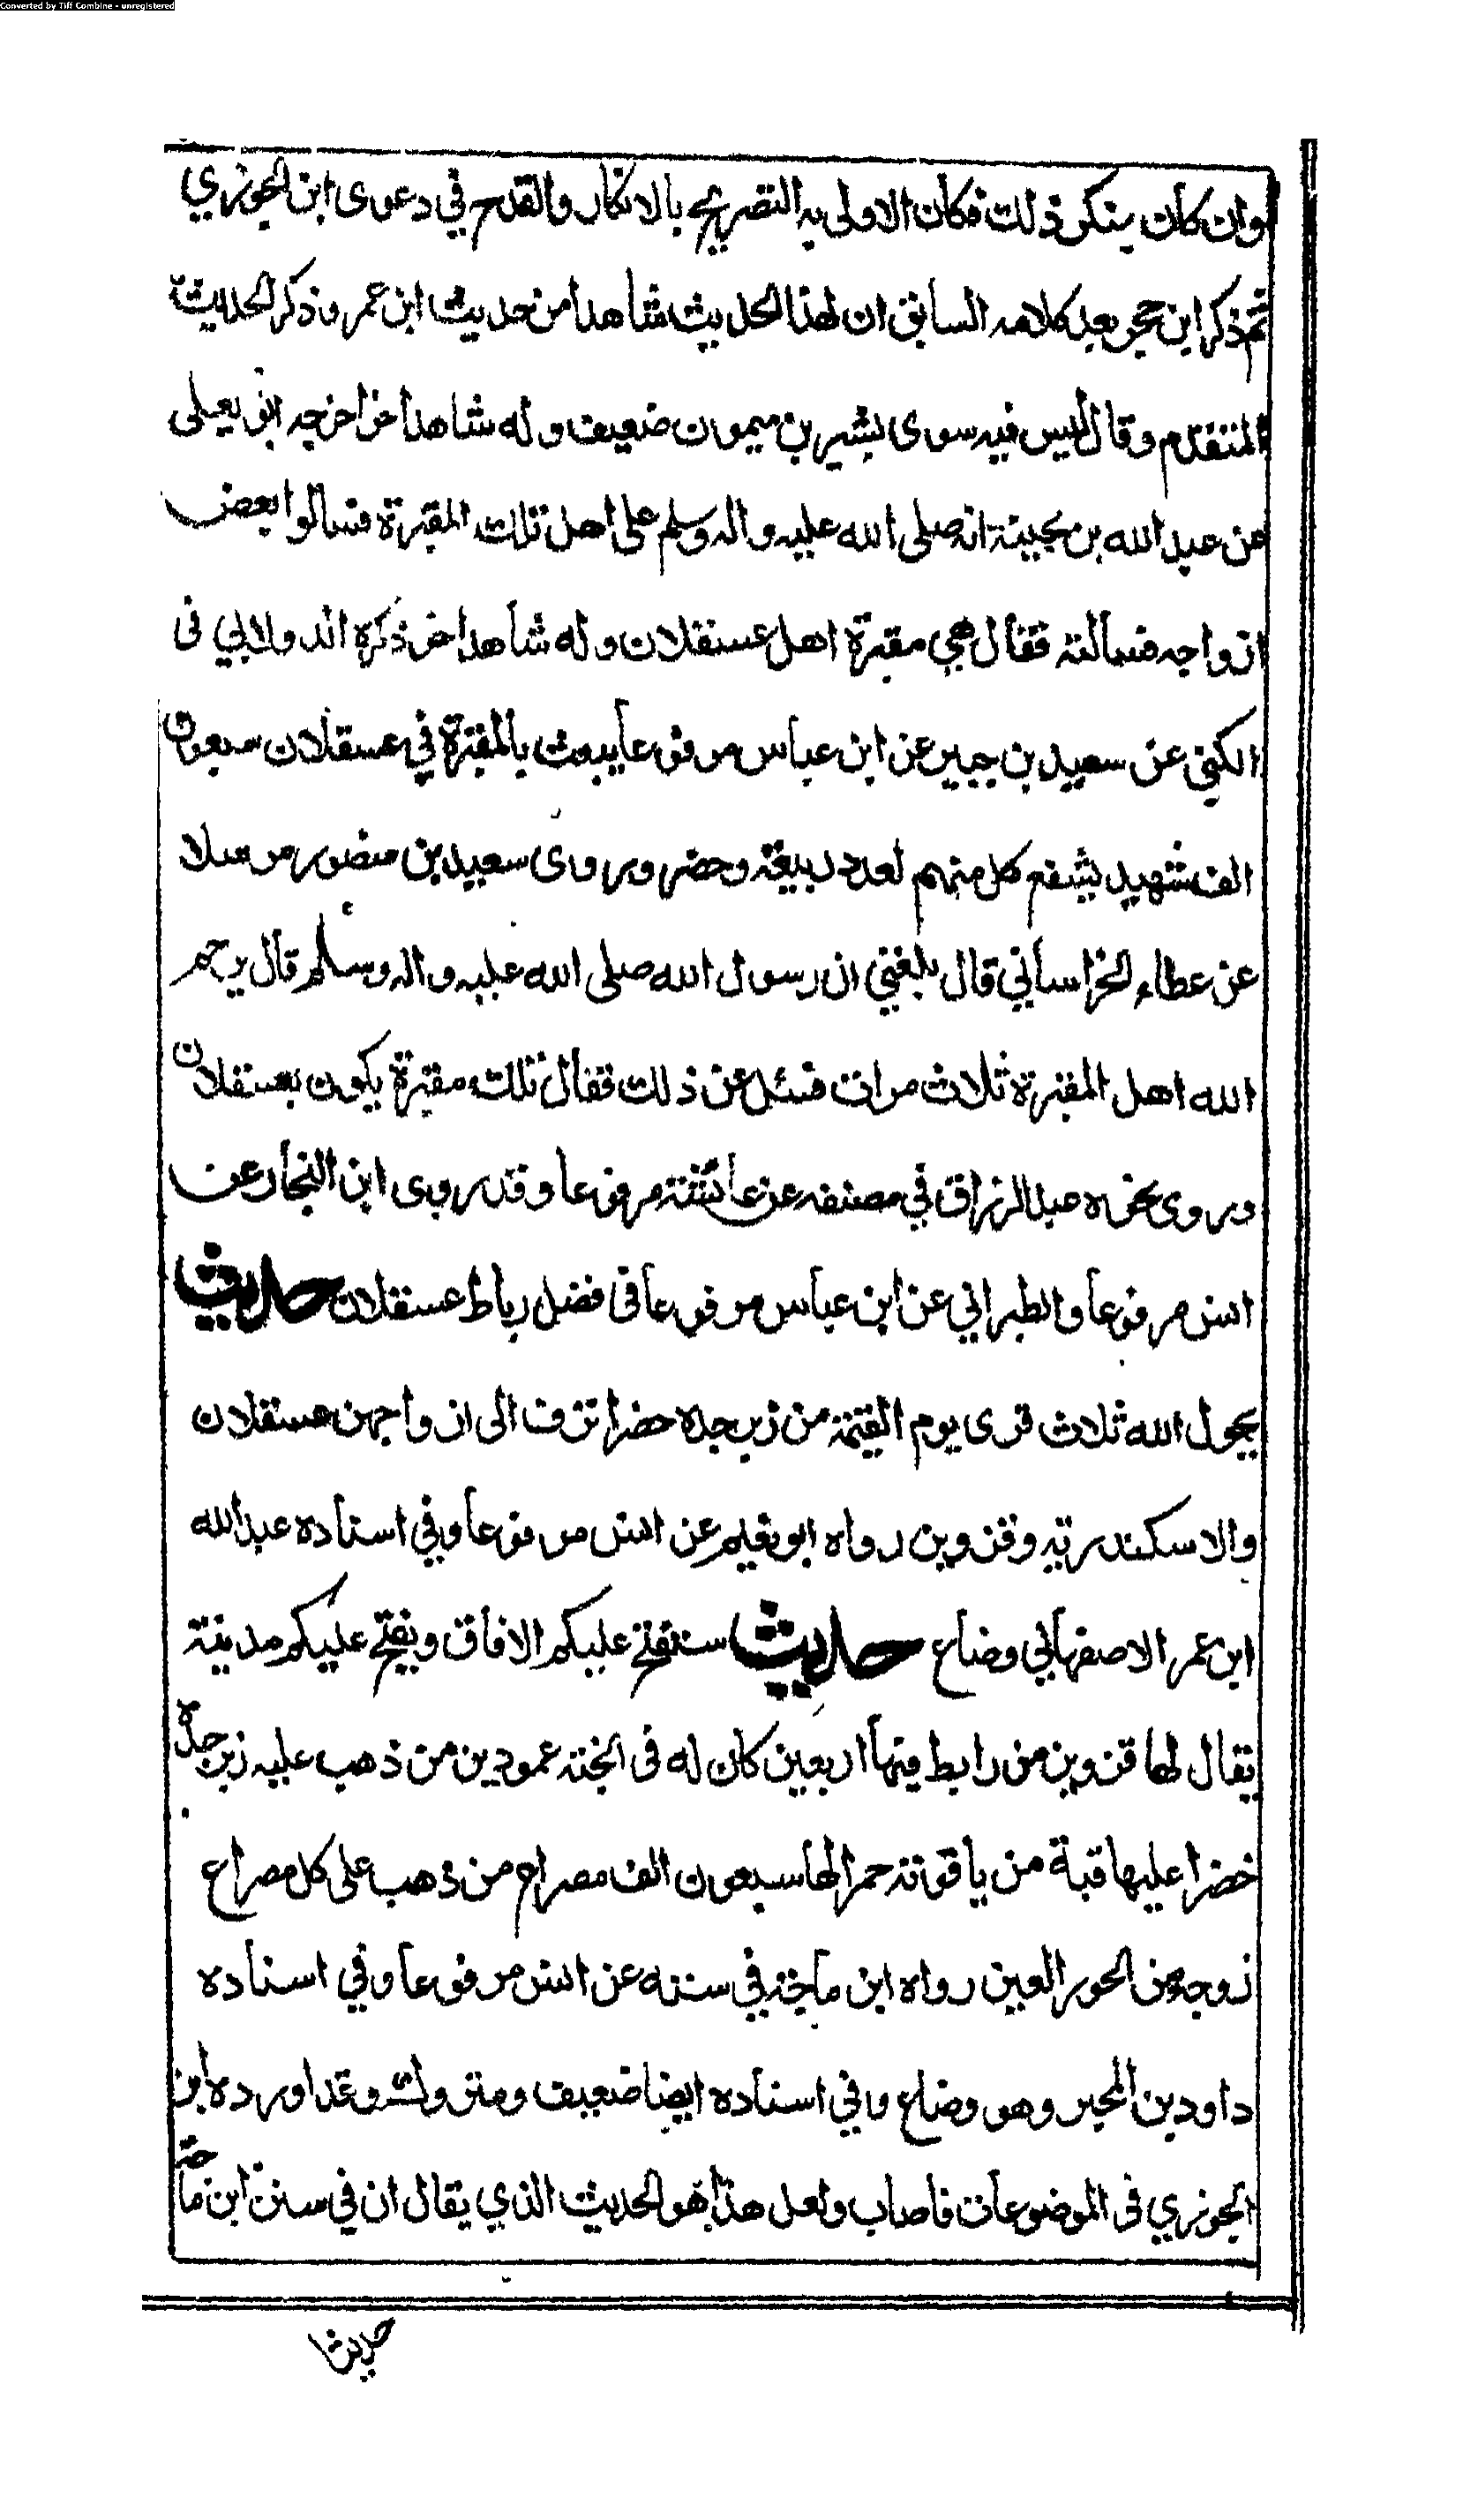 Converted by Tiff Combine - unregistered
وان كان ينكر ذلك فكان الاولى به التصريح بالانكار والقدح في دعوى ابن الجوزي
ثم ذكر ابن حجر بعد كلامه السابق ان لهذا الحديث شاهدا من حديث ابن عمر وذكر الحديث
المتقدم وقال ليس فيه سوى بشير بن ميمون ضعيف وله شاهد اخر اخرجه ابو يعلى
عن عبد الله بن بحينة انه صلى الله عليه واله وسلم على اهل تلك المقبرة فسالوا بعض
ازواجه فسالته فقال هي مقبرة اهل عسقلان وله شاهد اخر ذكره الدولابي فى
الكنى عن سعيد بن جبير عن ابن عباس مرفوعا يبعث بالمقبرة في عسقلان سبعون
الف شهيد يشفع كل منهم لعدد ربيعة ومضر وروى سعيد بن منصور مرسلا
عن عطاء الخراساني قال بلغني ان رسول الله صلى الله عليه واله وسلم قال يرحم
الله اهل المقبرة ثلاث مرات فسئل عن ذلك فقال تلك مقبرة يكون بعسقلان
وروى نحوه عبد الرزاق في مصنفه عن عائشة مرفوعا وقد روى ابن النجار عن
انس مرفوعا والطبراني عن ابن عباس مرفوعا فى فضل رباط عسقلان حديث
يحول الله ثلاث قرى يوم القيمة من زبرجده خضرا تزف الى ازواجهن عسقلان
والاسكندرية وقزوين رواه ابو نعيم عن انس مرفوعا وفي اسناده عبد الله
ابن عمر الاصفهاني وضاع حديث ستفتح عليكم الافاق ويفتح عليكم مدينة
يقال لها قزوين من رابط فيها اربعين كان له فى الجنة عمودين من ذهب عليه زبرجدة
خضرا عليها قبة من ياقوتة حمرا لها سبعون الف مصراع من ذهب على كل مصراع
زوجة من الحور العين رواه ابن ماجة في سننه عن انس مرفوعا وفي اسناده
داود بن المحبر وهو وضاع وفي اسناده ايضا ضعيف ومتروك وقد اورده ابن
الجوزي فى الموضوعات فاصاب ولعل هذا هو الحديث الذي يقال ان في سنن ابن ماجة
حديثا